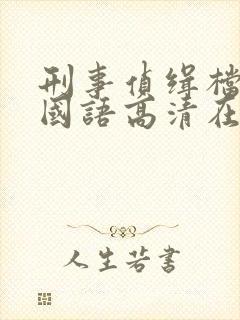 刑事偵缉檔
國語高清在
人生若書